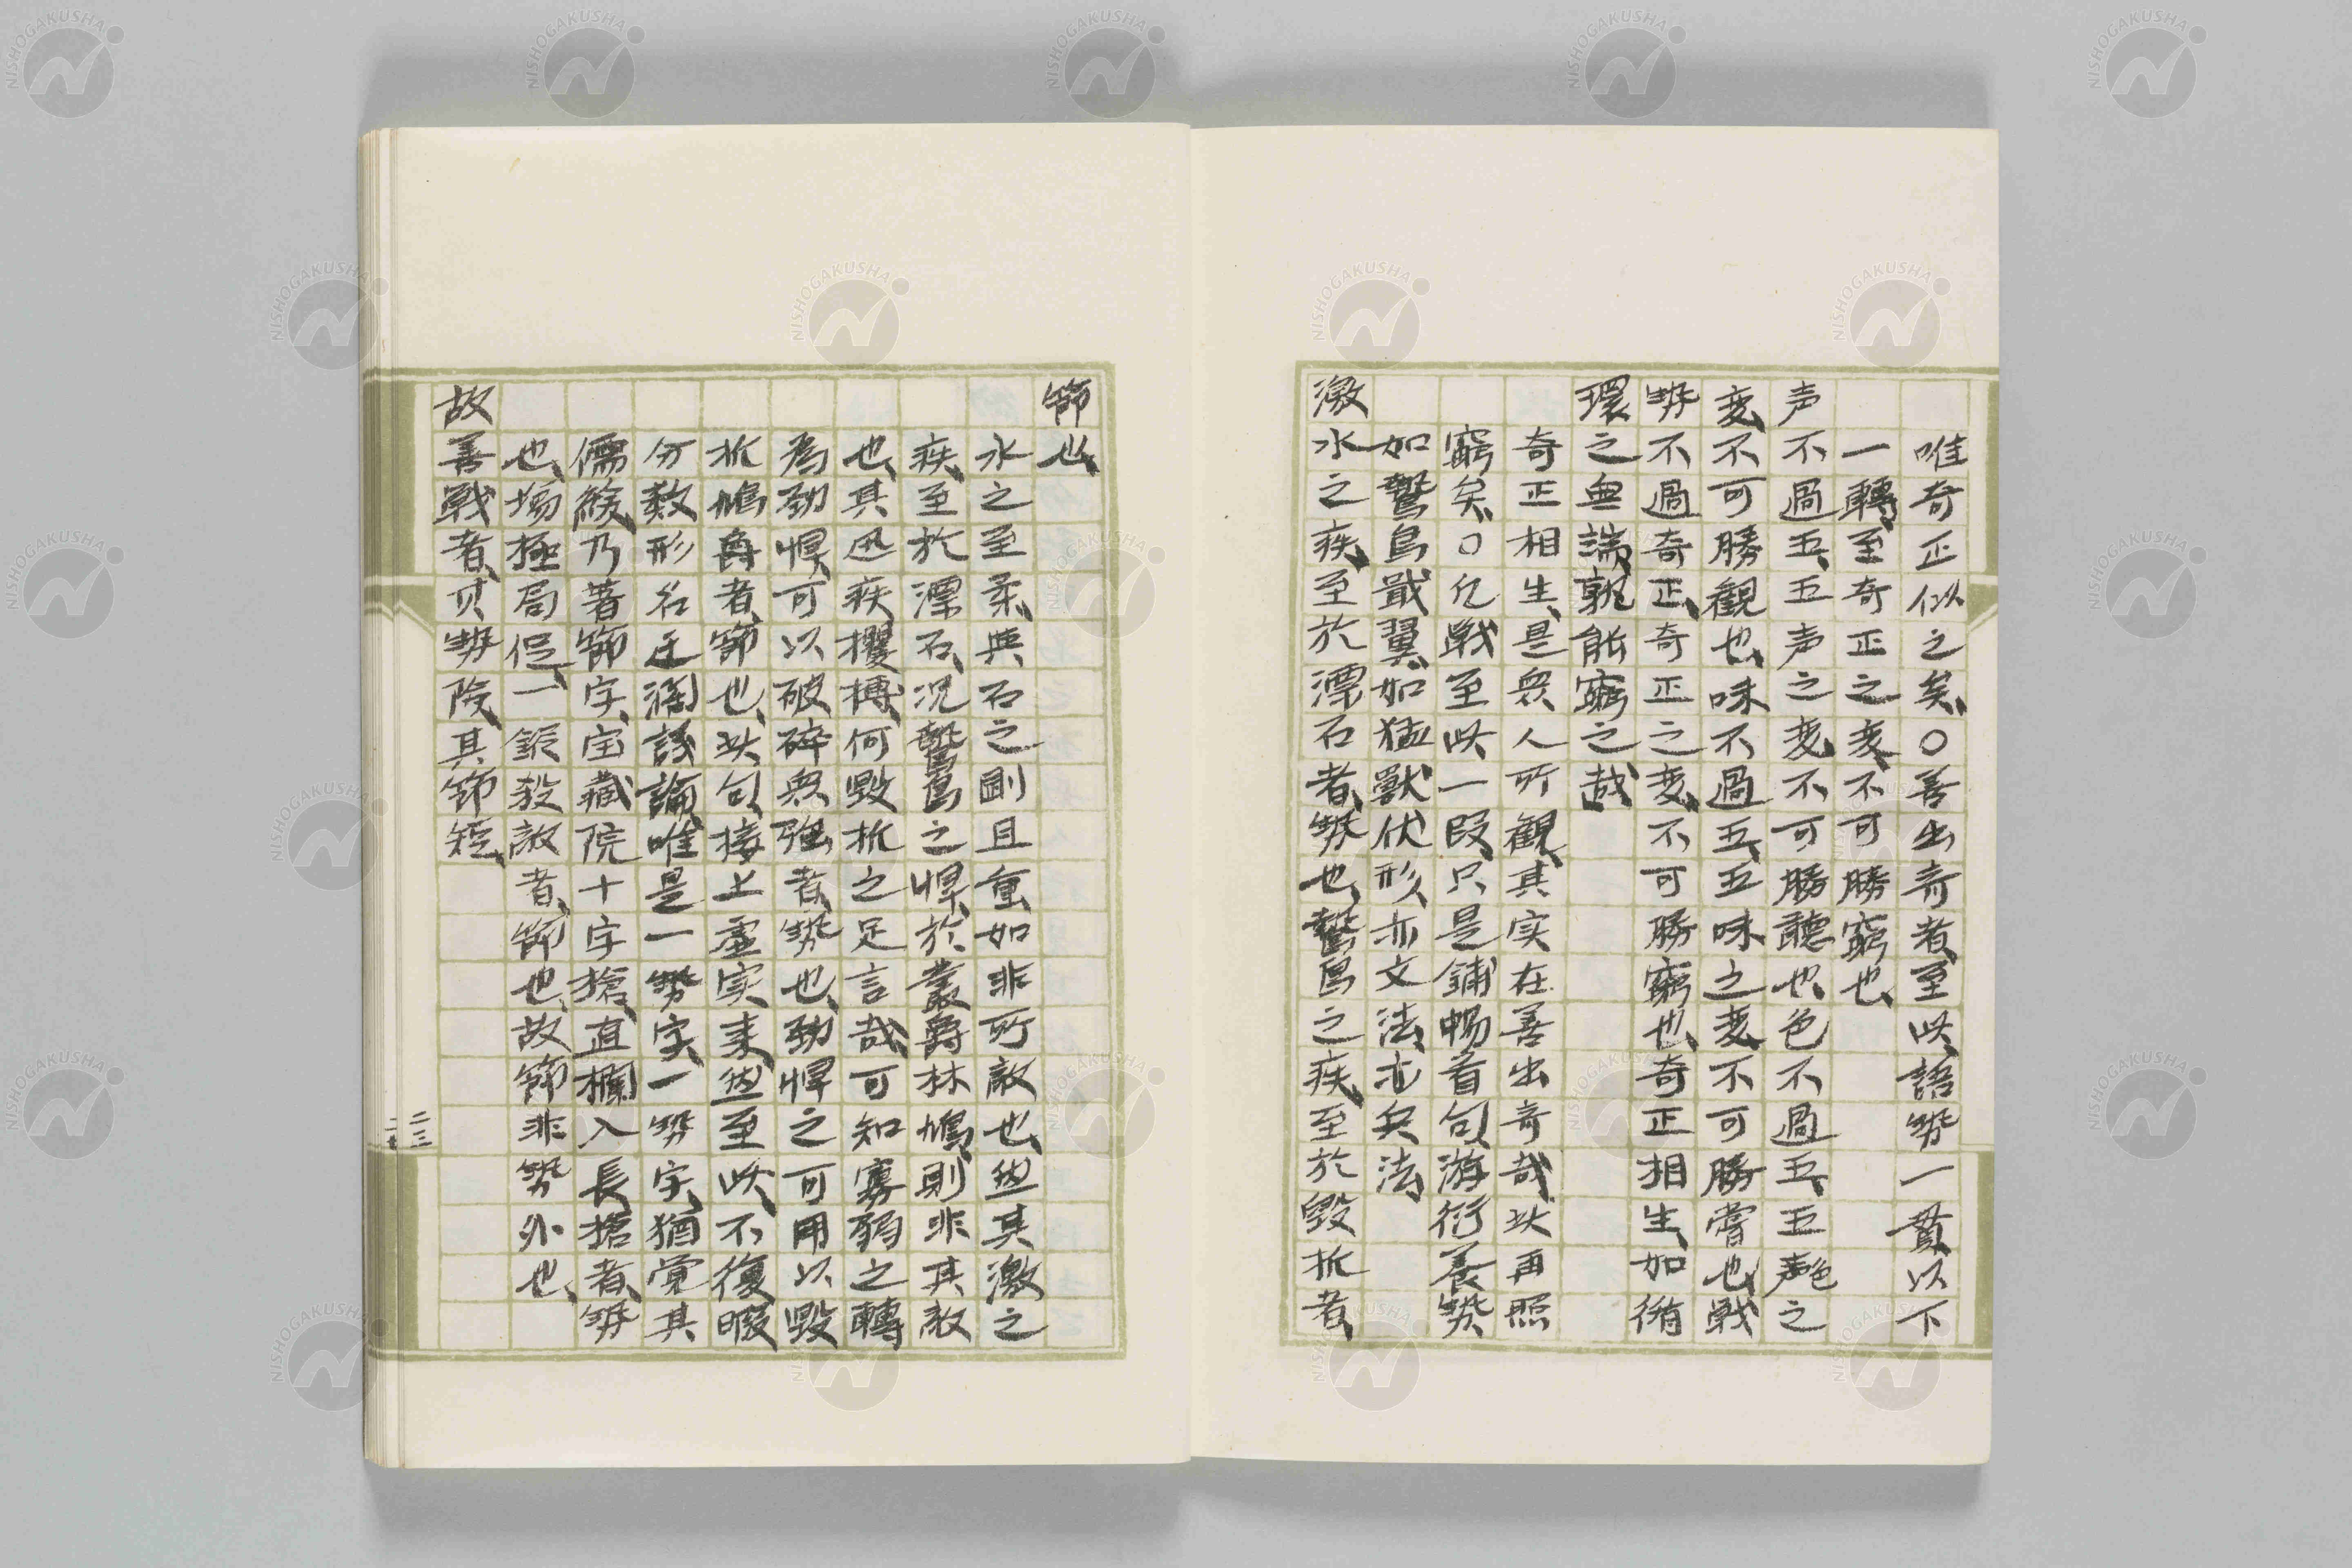 唯奇正似之矣、〇善出奇者、至此、語勢一貫、以下
一轉、至奇正之変、不可勝窮也、
声不過五、五声之変、不可勝聽也、色不過五、五色之
変、不可勝觀也、味不過五、五味之変、不可勝嘗也、戦
勢不過奇正、奇正之変、不可勝窮也、奇正相生、如循
環之無端、孰能窮之哉、
奇正相生、是無人所觀、其実在善出奇哉、以再照
窮矣、〇凡戦至此一段、只是鋪暢看句、游衍養勢、
如鷙鳥戢翼、如猛獸伏形、亦文法、亦兵法、
激水之疾、至於漂石者、勢也、鷙鳥之疾、至於毀折者、
節也、
水之至柔、與石之剛且重、如非所敵也、然其激之
疾、至於漂石、況鷙鳥之悍、於叢爵林鳩、則非其敵
也、其迅疾攫搏、何毀折之足言哉、可知寡弱之轉
為勁悍、可以破碎無强者、勢也、勁悍之可用以毀
折鳩爵者、節也、此句、接上虚実来、然至此、不復暇
分数形名迂濶議論、唯是一勢字、一勢字、猶覚其
儒緩、乃著節字、宝藏院十字槍、直欄入長槍者、勢
也、場極局促、一鋲殺敵者、節也、故節非勢外也、
故善戦者、其勢険、其節短、
二三